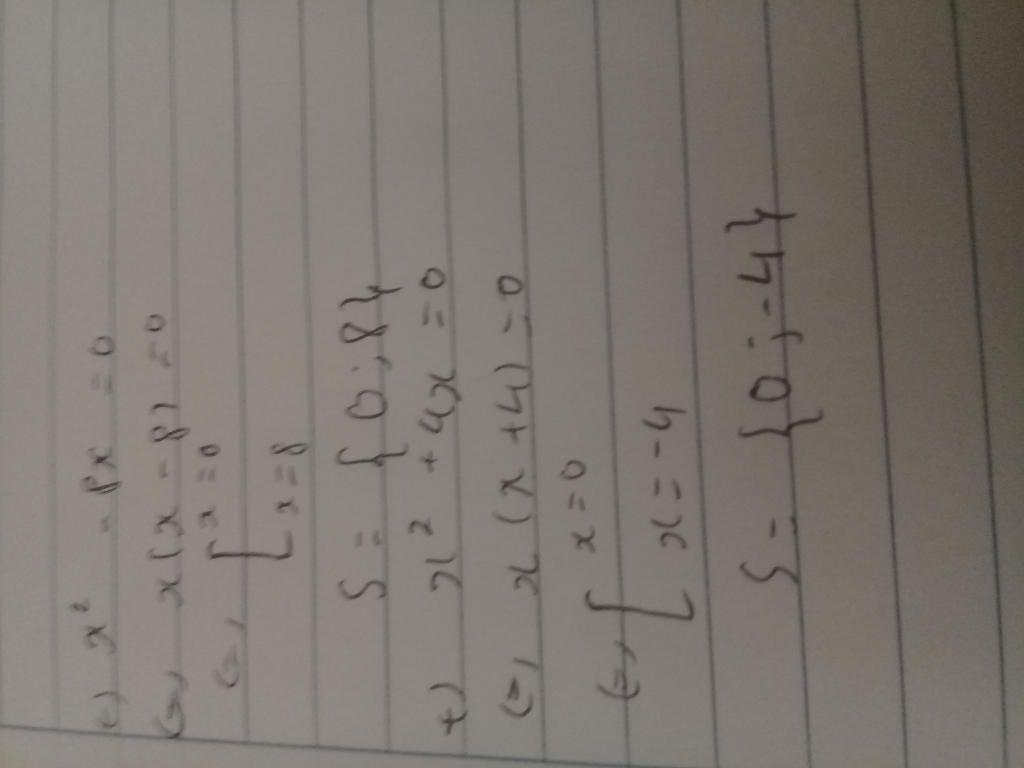 +) x² - 8x = 0
<=> x(x - 8) = 0
<=> [ x = 0
[ x = 8
S = {0; 8}
+) x² + 4x = 0
<=> x(x + 4) = 0
<=> [ x = 0
[ x = -4
S = {0; -4}